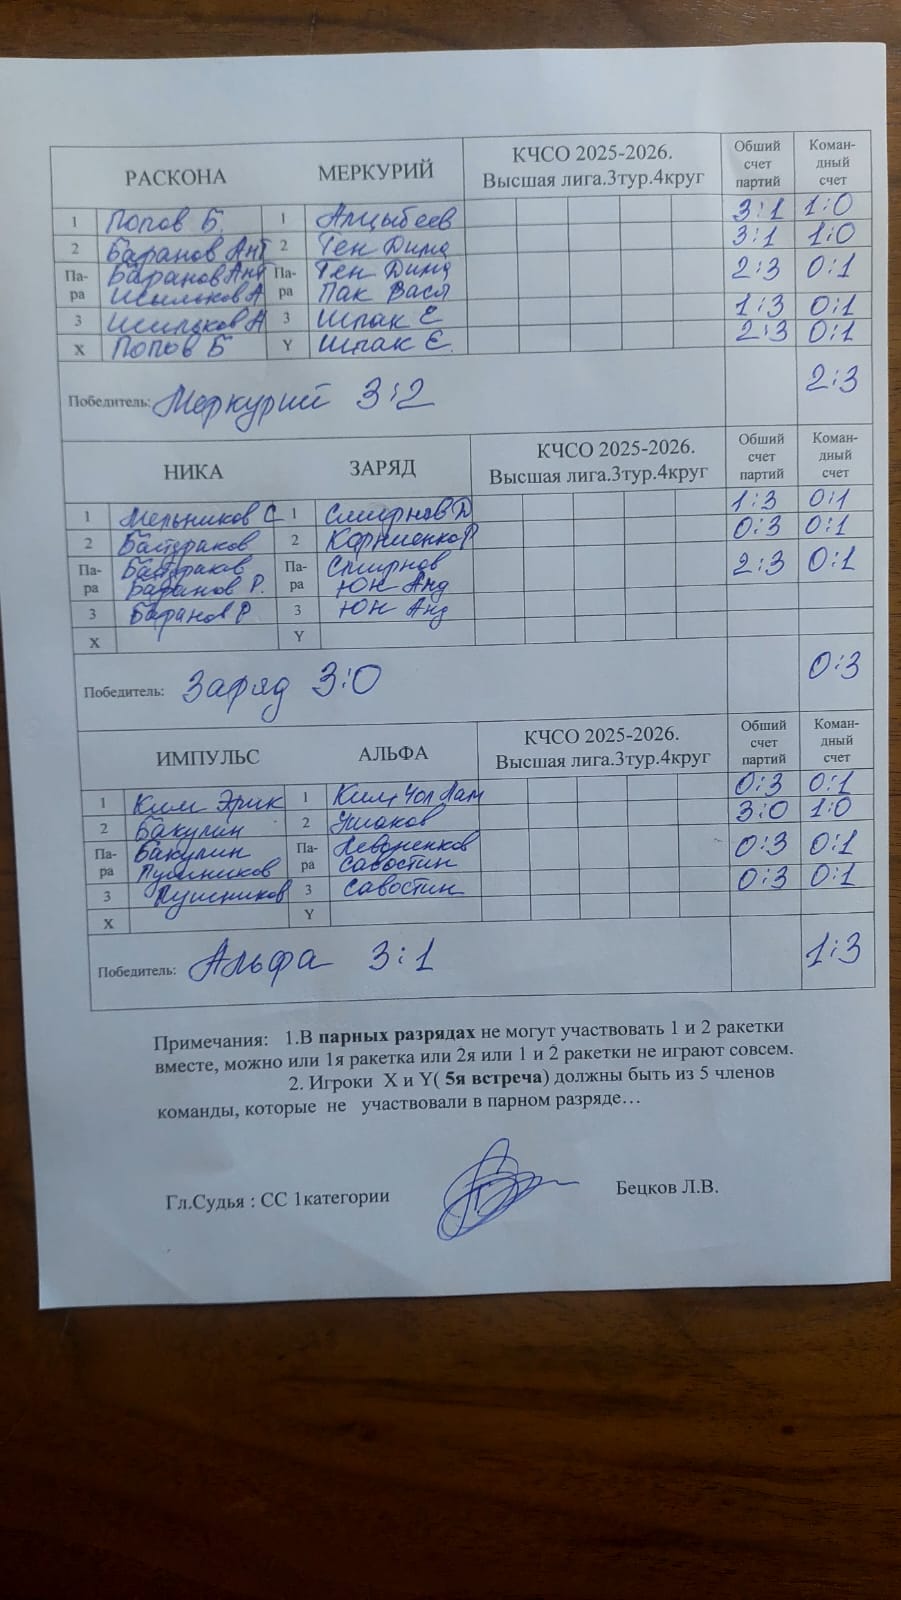 РАСКОНА МЕРКУРИЙ КЧСО 2025-2026. Высшая лига.3тур.4круг Обший счет партий Коман-дный счет
1 Попов Б. 1 Анцыбеев 3:1 1:0
2 Баранов Ант 2 Тен Дима 3:1 1:0
Па-ра Баранов Ант Па-ра Тен Дима 2:3 0:1
А Пак Вася
3 3 Шпак Е 1:3 0:1
X Попов Б Y Шпак Е. 2:3 0:1
Победитель: Меркурий 3:2 2:3
НИКА ЗАРЯД КЧСО 2025-2026. Высшая лига.3тур.4круг Обший счет партий Коман-дный счет
1 Мельников С 1 Смирнов Д 1:3 0:1
2 2 Корниенко Р 0:3 0:1
Па-ра Па-ра Смирнов 2:3 0:1
Баранов Р. Юн Анд
3 Баранов Р 3 Юн Анд
X Y
Победитель: Заряд 3:0 0:3
ИМПУЛЬС АЛЬФА КЧСО 2025-2026. Высшая лига.3тур.4круг Обший счет партий Коман-дный счет
1 Ким Эрик 1 Ким Чол Нам 0:3 0:1
2 Бакулин 2 Ушаков 3:0 1:0
Па-ра Бакулин Па-ра 0:3 0:1
Пушников Савостин
3 Пушников 3 Савостин 0:3 0:1
X Y
Победитель: Альфа 3:1 1:3
Примечания: 1.В парных разрядах не могут участвовать 1 и 2 ракетки
вместе, можно или 1я ракетка или 2я или 1 и 2 ракетки не играют совсем.
2. Игроки X и Y( 5я встреча) должны быть из 5 членов
команды, которые не участвовали в парном разряде…
Гл.Судья : СС 1категории Бецков Л.В.